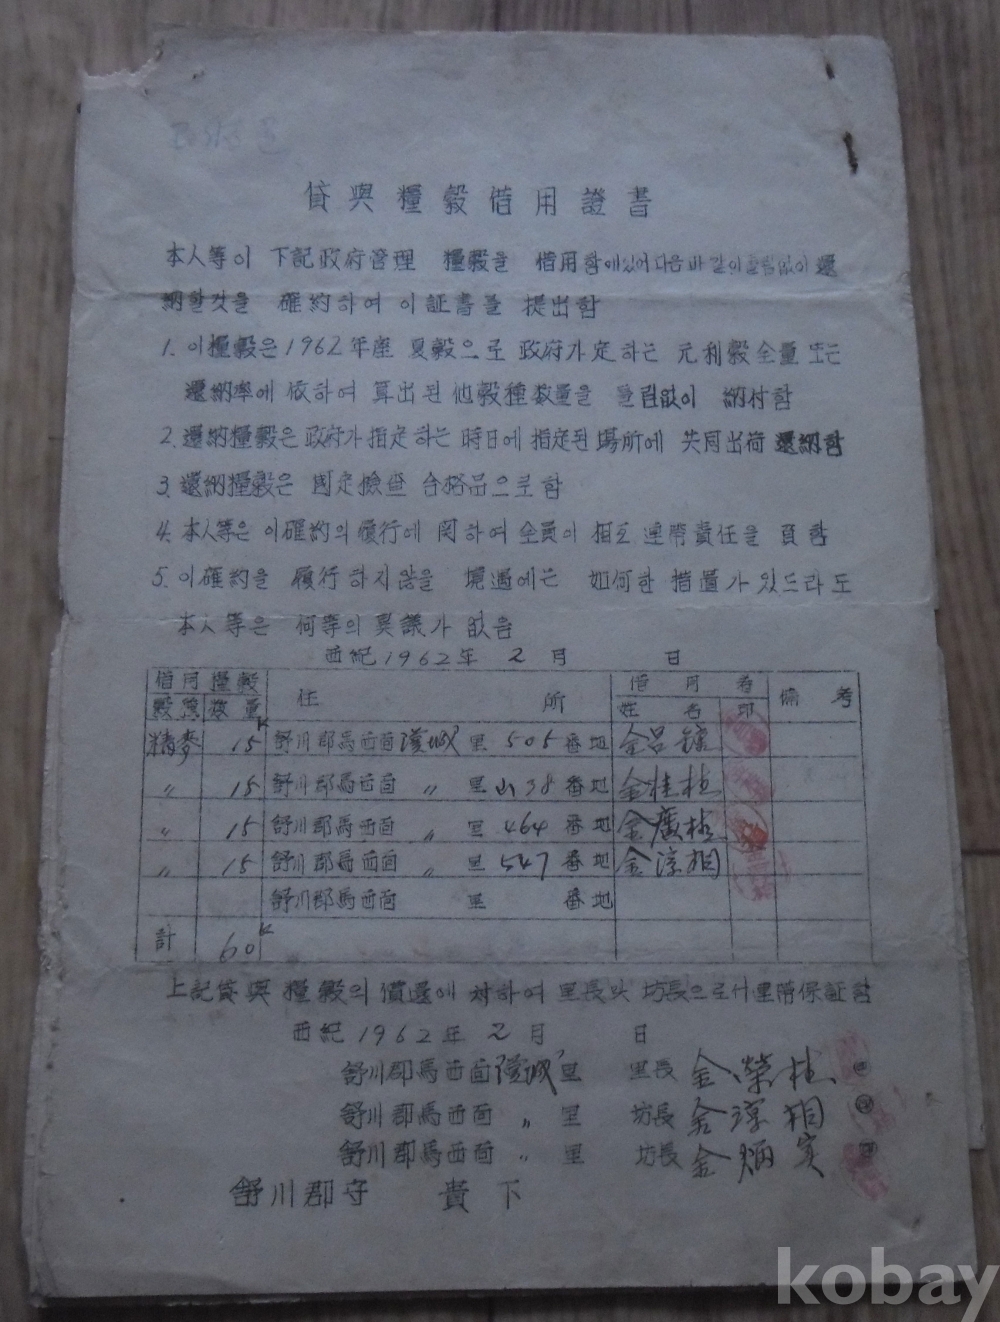 貸與糧穀借用證書
本人等이 下記政府管理 糧穀을 借用함에있어다음바같이틀림없이還
納할것을 確約하여 이証書를 提出함
1. 이糧穀은1962年産 夏穀으로 政府가定하는 元利穀全量또는
還納率에 依하여 算出된他穀種数量을 틀림없이 納付함
2. 還納糧穀은政府가指定하는時日에指定된場所에 共同出荷還納함
3. 還納糧穀은 國定撿查合格品으로함
4. 本人等은이確約의履行에関하여全員이相互連帶責任을負함
5. 이確約을 履行하지않을 境遇에는 如何한措置가있드라도
本人等은 何等의異議가없음
西紀1962年 2月 日
借用糧穀 住所 借用者 備考
穀種 数量 姓名 印
精麥 15K 舒川郡馬西面 里505番地 金呂鏞
〃 15 舒川郡馬西面 〃 里山38番地 金桂植
〃 15 舒川郡馬西面 〃 里464番地 金廣植
〃 15 舒川郡馬西面 〃 里547番地 金淳相
舒川郡馬西面 里 番地
計 60K
上記貸與糧穀의償還에対하여里長및坊長으로서連帶保証함
西紀1962年 2月 日
舒川郡馬西面 里 里長 金榮植 ㊞
舒川郡馬西面 〃 里 坊長 金淳相 ㊞
舒川郡馬西面 〃 里 坊長 金炳实 ㊞
舒川郡守 貴下
kobay